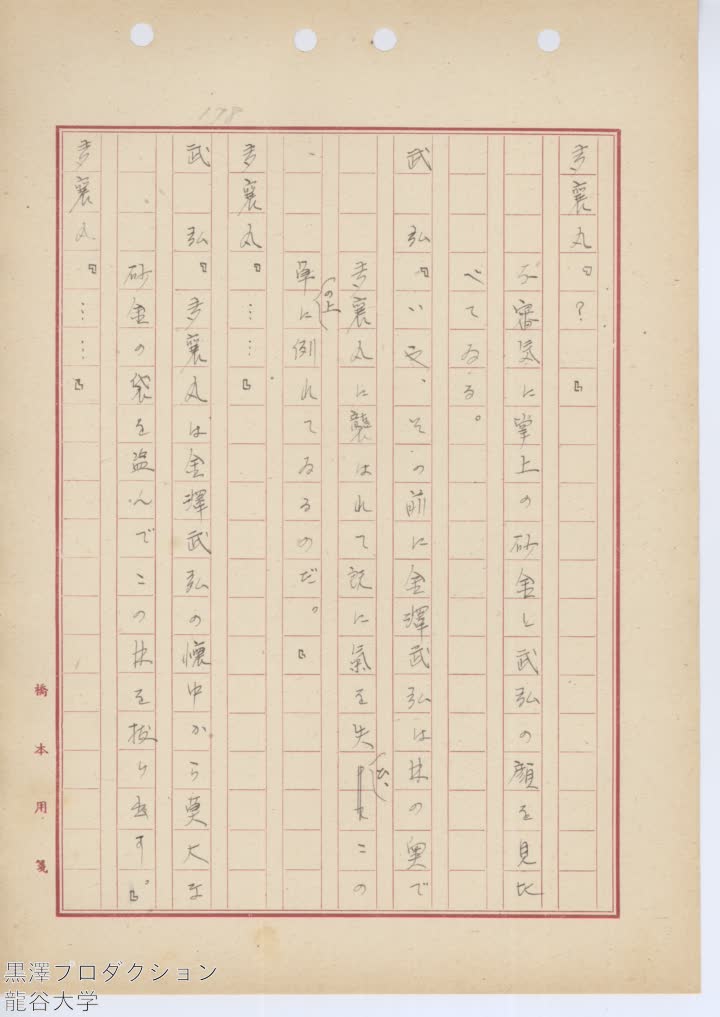 178
多襄丸『？　』
不審気に掌上の砂金と武弘の顔を見比
べてゐる。
武　弘『いや、その前に金澤武弘は林の奥で
多襄丸に襲はれて既に氣を失ひ、この
草の上に倒れてゐるのだ。』
多襄丸『……』
武　弘『多襄丸は金澤武弘の懐中から莫大な
砂金の袋を盗んでこの林を抜け出す。』
多襄丸『……』
橋本用箋
黒澤プロダクション
龍谷大学